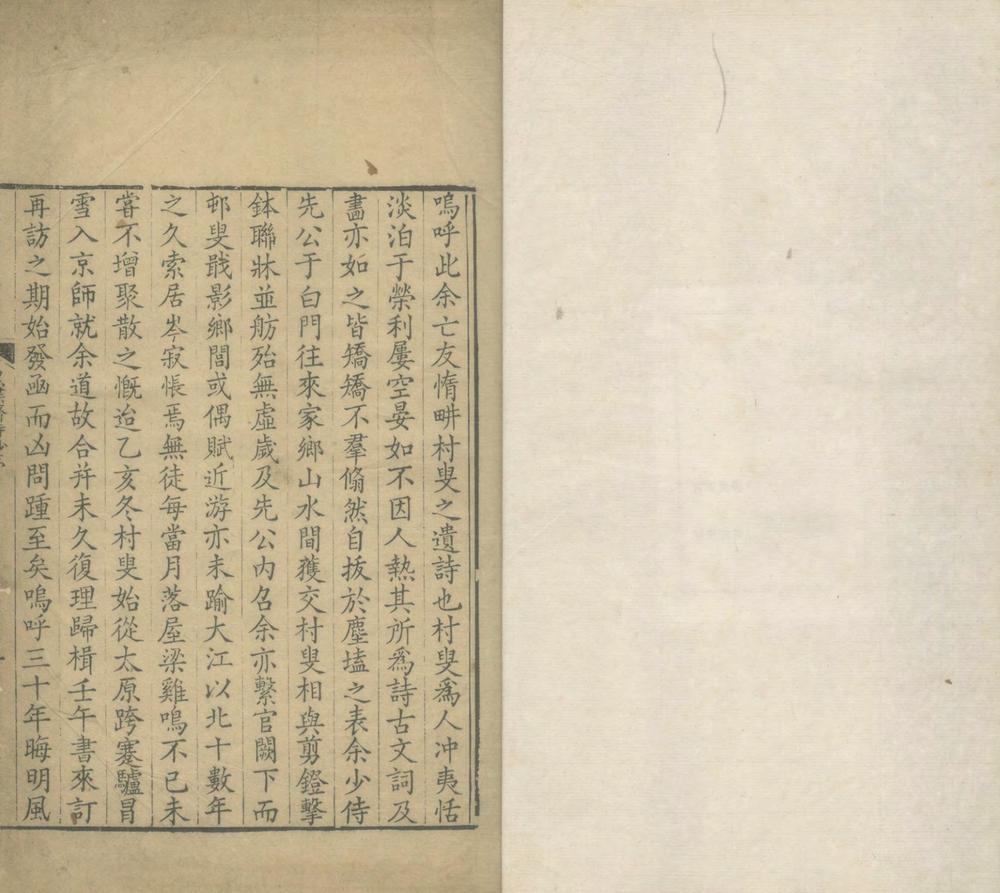 嗚呼此余亡友惰畊村叟之遺詩也村叟爲人冲夷恬
淡泊于榮利屢空晏如不因人熱其所爲詩古文詞及
畵亦如之皆矯矯不羣翛然自拔於塵壒之表余少侍
先公于白門往來家鄉山水間獲交村叟相與剪鐙擊
鉢聯牀並舫殆無虛歲及先公內召余亦繫官闕下而
邨叟戢影鄉閭或偶賦近游亦未踰大江以北十數年
之久索居岑寂悵焉無徒每當月落屋梁雞鳴不已未
嘗不增聚散之慨迨乙亥冬村叟始從太原跨蹇驢冒
雪入京師就余道故合并未久復理歸楫壬午書來訂
再訪之期始發函而凶問踵至矣嗚呼三十年晦明風